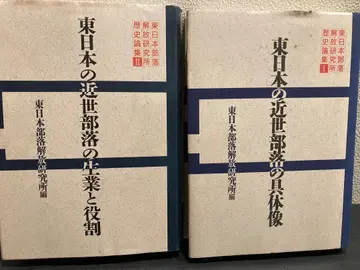 東日本部落
解放研究所
歴史論集Ⅱ
東日本の近世部落の生業と役割
東日本部落解放研究所編
東日本部落
解放研究所
歴史論集Ⅰ
東日本の近世部落の具体像
東日本部落解放研究所編